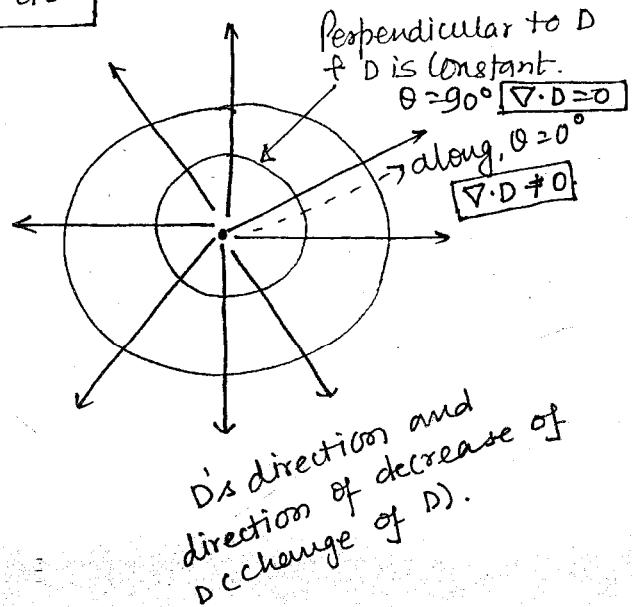 Perpendicular to D
& D is Constant.
θ = 90° ∇·D = 0
along, θ = 0°
∇·D ≠ 0
D's direction and
direction of decrease of
D (change of D).